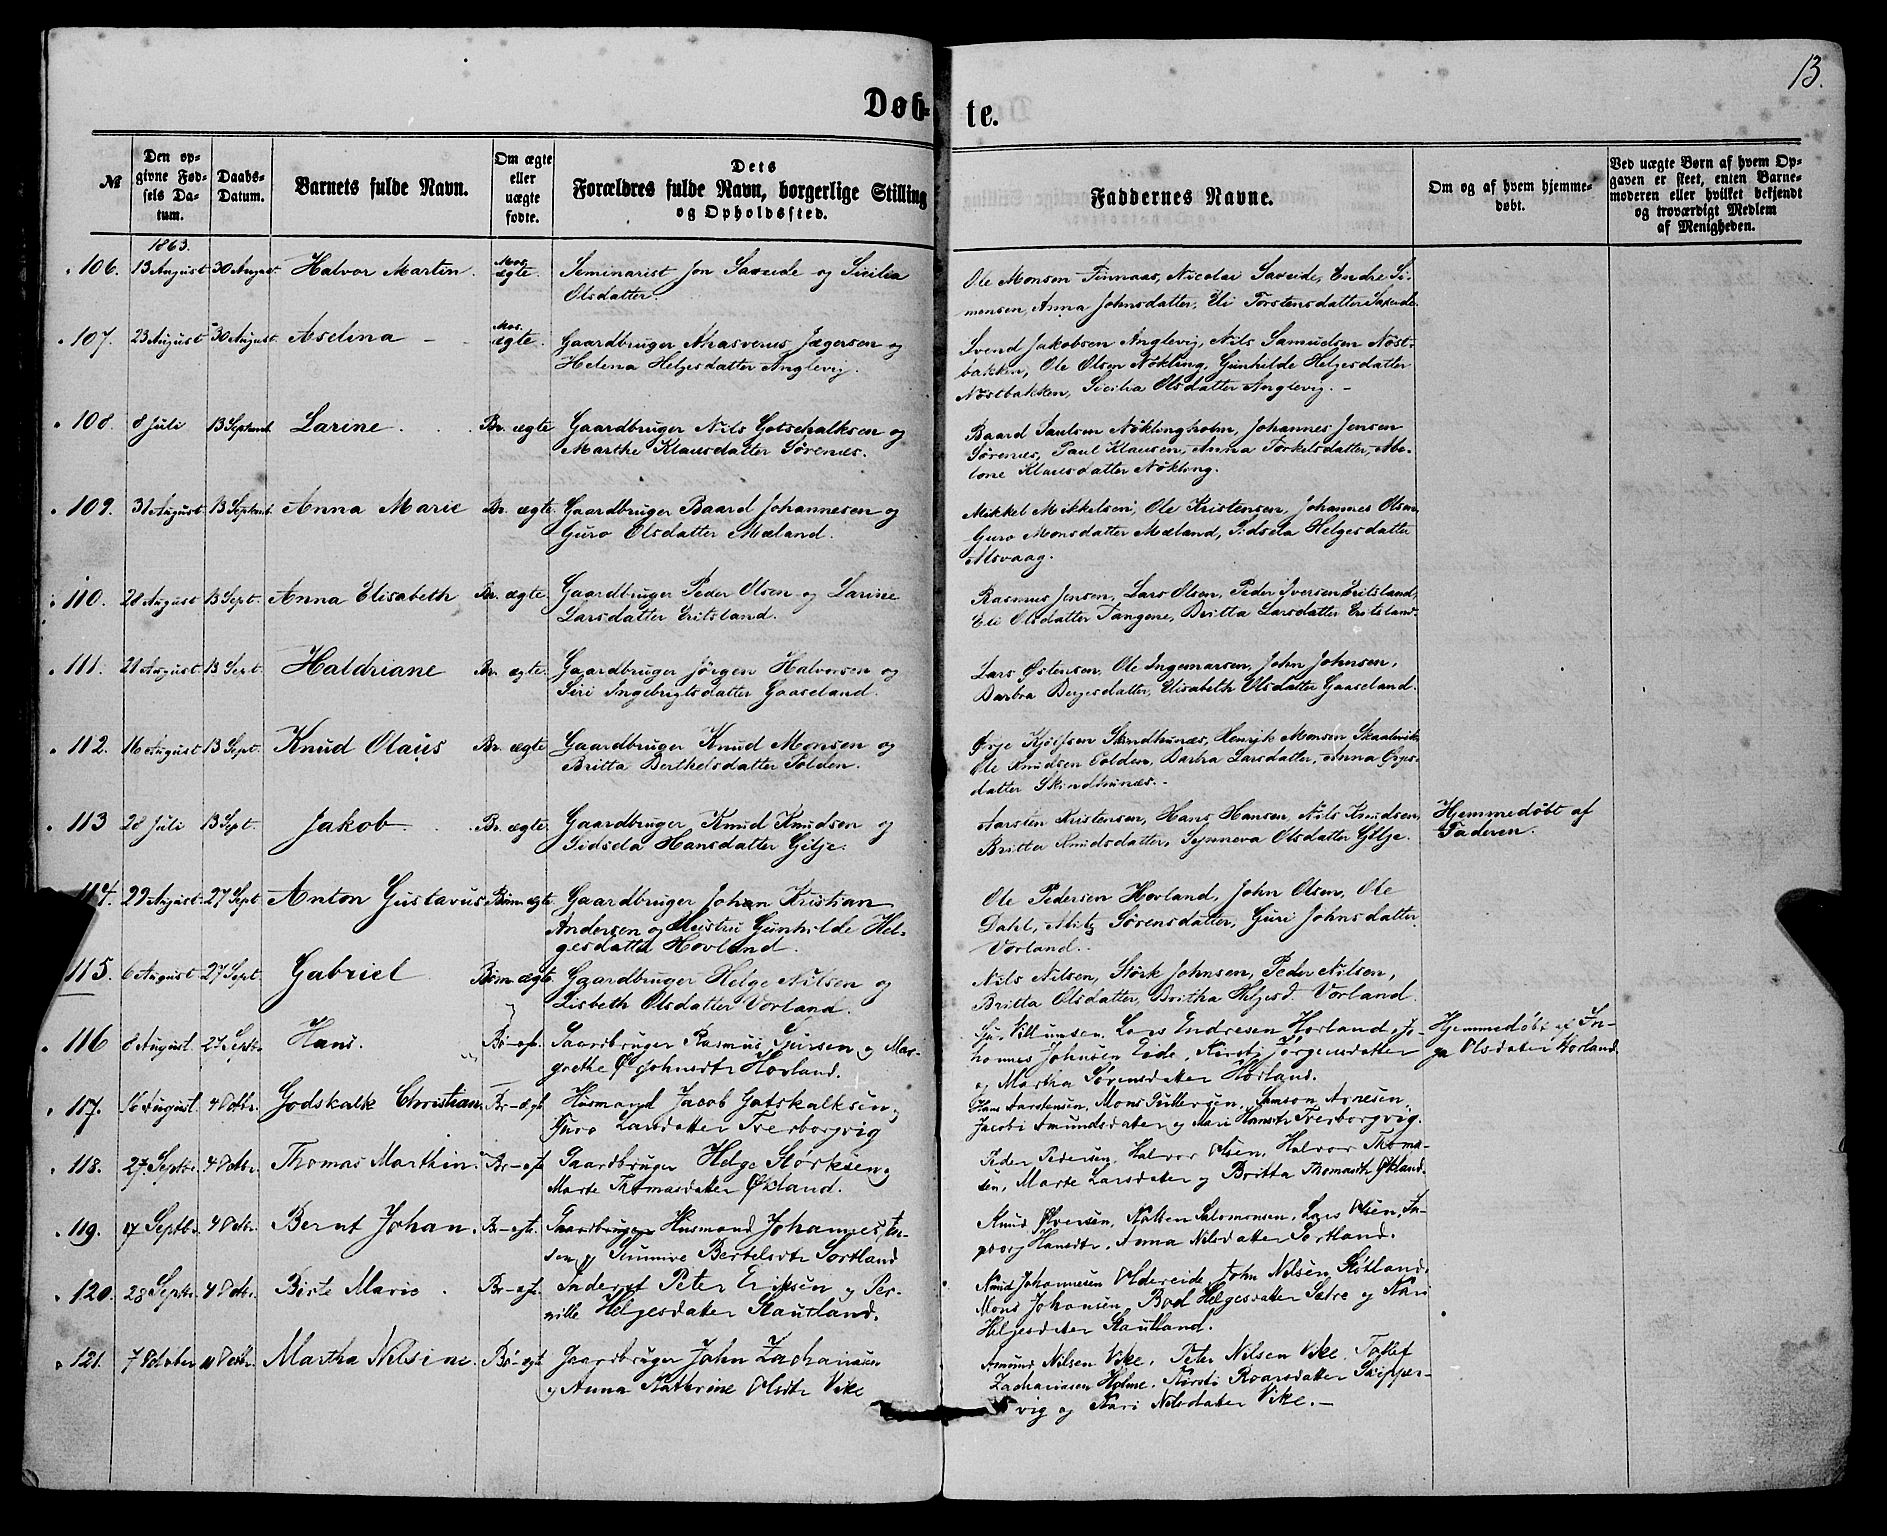 13.
Døb- te.
№
Den op-
givne Fød-
sels Da-
tum.
Daabs-
Datum.
Barnets fulde Navn.
Om ægte
eller
uægte
fødte.
Dets
Forældres fulde Navn, borgerlige Stilling
og Opholdssted.
Faddernes Navne.
Om og af hvem hjemme-
døbt.
Ved uægte Børn af hvem Op-
gaven er skeet, enten Barne-
moderen eller hvilket bekjendt
og troværdigt Medlem
af Menigheden.
1863.
106. 13 August 30 August Halvor Martin. Mos. ægte.
Seminarist Jon Saxeide og Sicilia
Olsdatter.
Ole Monsen Finnaas, Nicolai Saxeide, Endre Si-
monsen, Anna Johnsdatter, Eli Torstensdatter Saxeide
107. 23 August 30 August Aselina Mos. ægte.
Gaardbruger Ahasverus Jægersen og
Helena Helgesdatter Anglevig.
Svend Jakobsen Anglevig, Nils Samuelsen Nøst-
bakken, Ole Olsen Nøkling, Gunhilde Helgesdatter
Nøstbakken, Sicilia Olsdatter Anglevig. -
108. 8 Juli 13 Septemb. Larine. Br. ægte
Gaardbruger Nils Gotschalksen og
Marthe Klausdatter Sørenæs.
Baard Paulsen Nøklingholm, Johannes Jensen
Sørenæs, Paul Klausen, Anna Torkelsdatter, Abe-
lone Klausdatter Nøkling.
109. 31 August 13 Septemb. Anna Marie Br. ægte.
Gaardbruger Baard Johannesen og
Guro Olsdatter Mæland.
Mikkel Mikkelsen, Ole Kristensen, Johannes Olsen
Guro Monsdatter Mæland, Sidsela Helgesdatter
Alsvaag.
110. 28 August 13 Sept. Anna Elisabeth Br. ægte.
Gaardbruger Peder Olsen og Larine
Larsdatter Eritsland.
Rasmus Jensen, Lars Olsen, Peder Iversen Eritsland,
Eli Olsdatter Tangene, Britta Larsdatter Eritsland.
111. 21 August 13 Sept. Haldriane Br. ægte.
Gaardbruger Jörgen Halvorsen og
Siri Ingebrigtsdatter Gaaseland.
Lars Østensen, Ole Ingemarsen, John Johnsen,
Barbra Bergesdatter, Elisabeth Olsdatter Gaaseland.
112. 16 August 13 Sept. Knud Olaüs Br. ægte
Gaardbruger Knud Monsen og
Britta Berthelsdatter Folden.
Ørje Skindhunæs, Henrik Monsen Skaalevik
Ole Knudsen Folden, Barbra Larsdatter, Anna Ørjes-
datter Skindhunæs. -
113 28 Juli 13 Sept. Jakob. Br. ægte
Gaardbruger Knud Knudsen og
Sidsela Hansdatter Gilje.
Aarsten Kristensen, Hans Hansen, Nils Knudsen,
Britta Knudsdatter, Synneva Olsdatter Gilje.
Hjemmedøbt af
Faderen.
114. 22 August 27 Sept Anton Gustavus Bøm. ægte
Gaardbruger Johan Kristian
Andersen og Hustru Gunhilde Hel-
gesdatter Hovland.
Ole Pedersen Hovland, John Olsen, Ole
Dahl, Sørensdatter, Guri Johnsdatter
Vorland.
115. 6 August 27 Sept. Gabriel Bøm. ægte
Gaardbruger Helge Nilsen og
Lisbeth Olsdatter Vorland.
Nils Nilsen, Størk Johnsen, Peder Nilsen,
Britta Olsdatter, Britha Helgesd. Vorland.
116 8 August. 27 Septbr. Hans. Bø-
Gaardbruger Rasmus og Mar-
grethe Johnsdtr Hovland.
Lars Endresen Hovland, Jo-
hannes Johnsen Eide, Kirsti Jørgensdatter
og Martha Sørensdatter Hovland.
Hjemmedøbt af In-
ga Olsdatter Hovland
117. 16 August. 4 Octbr. Godskalk Christian. Br-ægt.
Husmand Jacob Gotskalksen og
Guro Larsdatter Træborgvig
Hans Aarstensen, Mons Pettersen, Samson Arnesen
Jacobi Amundsdatter og Mari Hansdtr Træborgvig.
118. 27 Septbr. 4 Octbr. Thomas Marthin. Br-
Gaardbruger Helge Størksen og
Marte Thomasdatter Økland.
Peder Pedersen, Halvor Olsen, Halvor Thoma-
sen, Marte Larsdatter og Britta Thomasdtr Økland.
119. 17 Septbr. 4 Octbr. Bernt Johan. Br-ægt.
Gaardbruger Husmand Johannes
sen og Sunnive Bertelsdtr Sortland
Knud Iversen, Salomonsen, Lars Olsen, In-
geborg Hansdtr, Anna Nilsdatter Sortland.
120. 28 Septbr. 4 Octbr. Birte Marie. Br-
Inderst Peter Eriksen og Per-
nille Helgesdatter Stautland.
Knud Johannesen Oldereide, John Nilsen Stautland,
Mons Johansen, Helgesdatter Sætre og Kari
Helgesdatter Stautland.
121. 7 October 11 Octbr. Martha Nilsine. Bø-ægt.
Gaardbruger John Zachariasen
og Anna Kathrine Olsdtr Vike
Amund Nilsen Vike, Peter Nilsen Vike, Tollef
Zachariasen Holme, Kirsti Roarsdatter Skipper-
vig og Kari Nilsdatter Vike. -